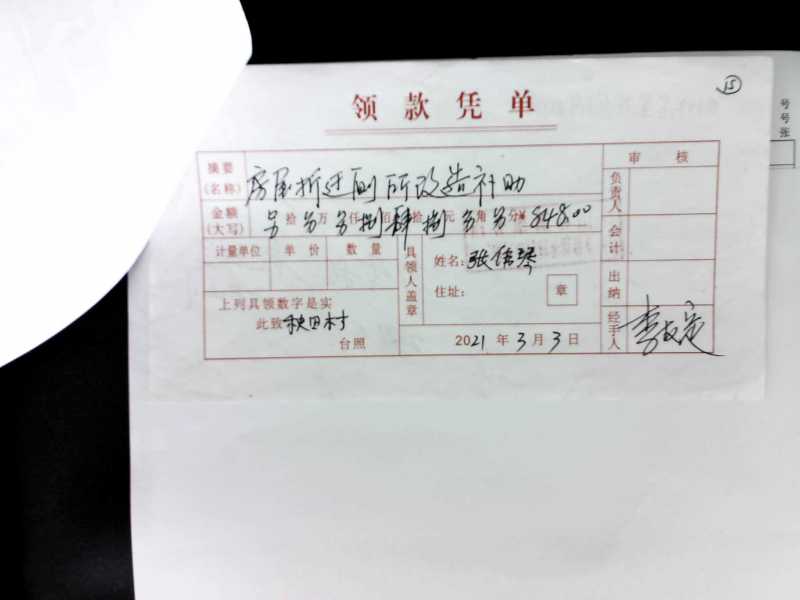 15
领款凭单
号
号
张
摘要
(名称)
房屋拆迁厕所改造补助
审核
负责人
金额
(大写)
拾 万 仟捌佰肆拾捌元 角 分 ¥848.00
计量单位 单价 数量
具领人盖章
姓名:张
住址:
章
会计
出纳
上列具领数字是实
此致 秧田村
台照
2021年3月3日
经手人
李